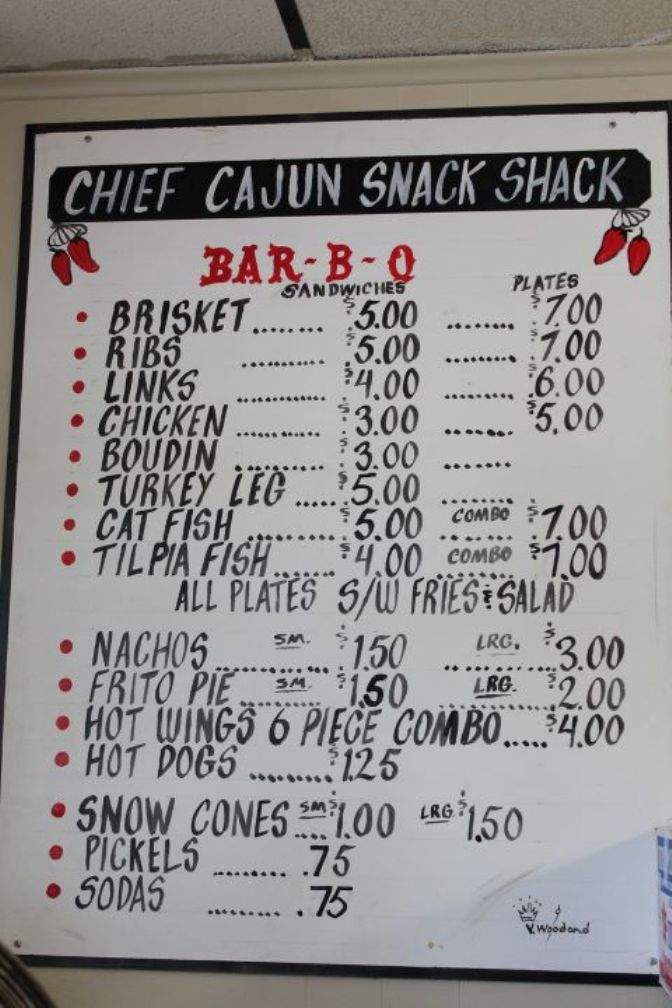 CHIEF CAJUN SNACK SHACK
BAR-B-Q
SANDWICHES PLATES
• BRISKET........ $5.00 ........ $7.00
• RIBS ......... $5.00 ......... $7.00
• LINKS ......... $4.00 ......... $6.00
• CHICKEN ......... $3.00 ....... $5.00
• BOUDIN ......... $3.00 .......
• TURKEY LEG ..... $5.00 ........
• CAT FISH ............ $5.00 COMBO ........ $7.00
• TILPIA FISH....... $4.00 COMBO ........ $7.00
ALL PLATES S/W FRIES & SALAD
• NACHOS SM. ............ $1.50 LRG. ............ $3.00
• FRITO PIE SM. ......... $1.50 LRG. ............ $2.00
• HOT WINGS 6 PIECE COMBO..... $4.00
• HOT DOGS ......... $1.25
• SNOW CONES SM .... $1.00 LRG. $1.50
• PICKELS ......... .75
• SODAS ......... .75
V. Woodard